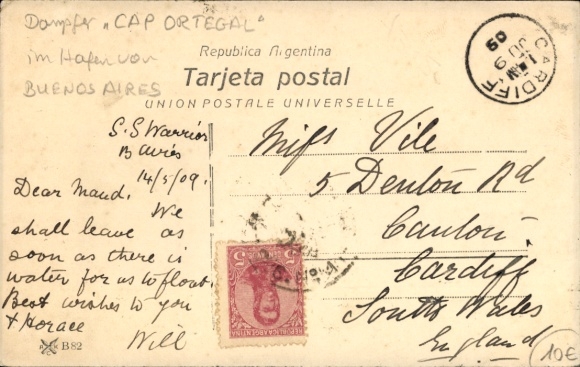 Dampfer „CAP ORTEGAL"
im Hafen von
BUENOS AIRES
Republica Argentina
Tarjeta postal
UNION POSTALE UNIVERSELLE
CARDIFF
JU 9
09
S.S Warrior
B Aures
14/5/09.
Dear Maud.
We
shall leave as
soon as there is
water for us to float.
Best wishes to you
+ Horace
Will
B 82
Miss Vile
5 Denton Rd
Canton
Cardiff
South Wales
England
5 CENTAVOS 5
REPUBLICA ARGENTINA
10€